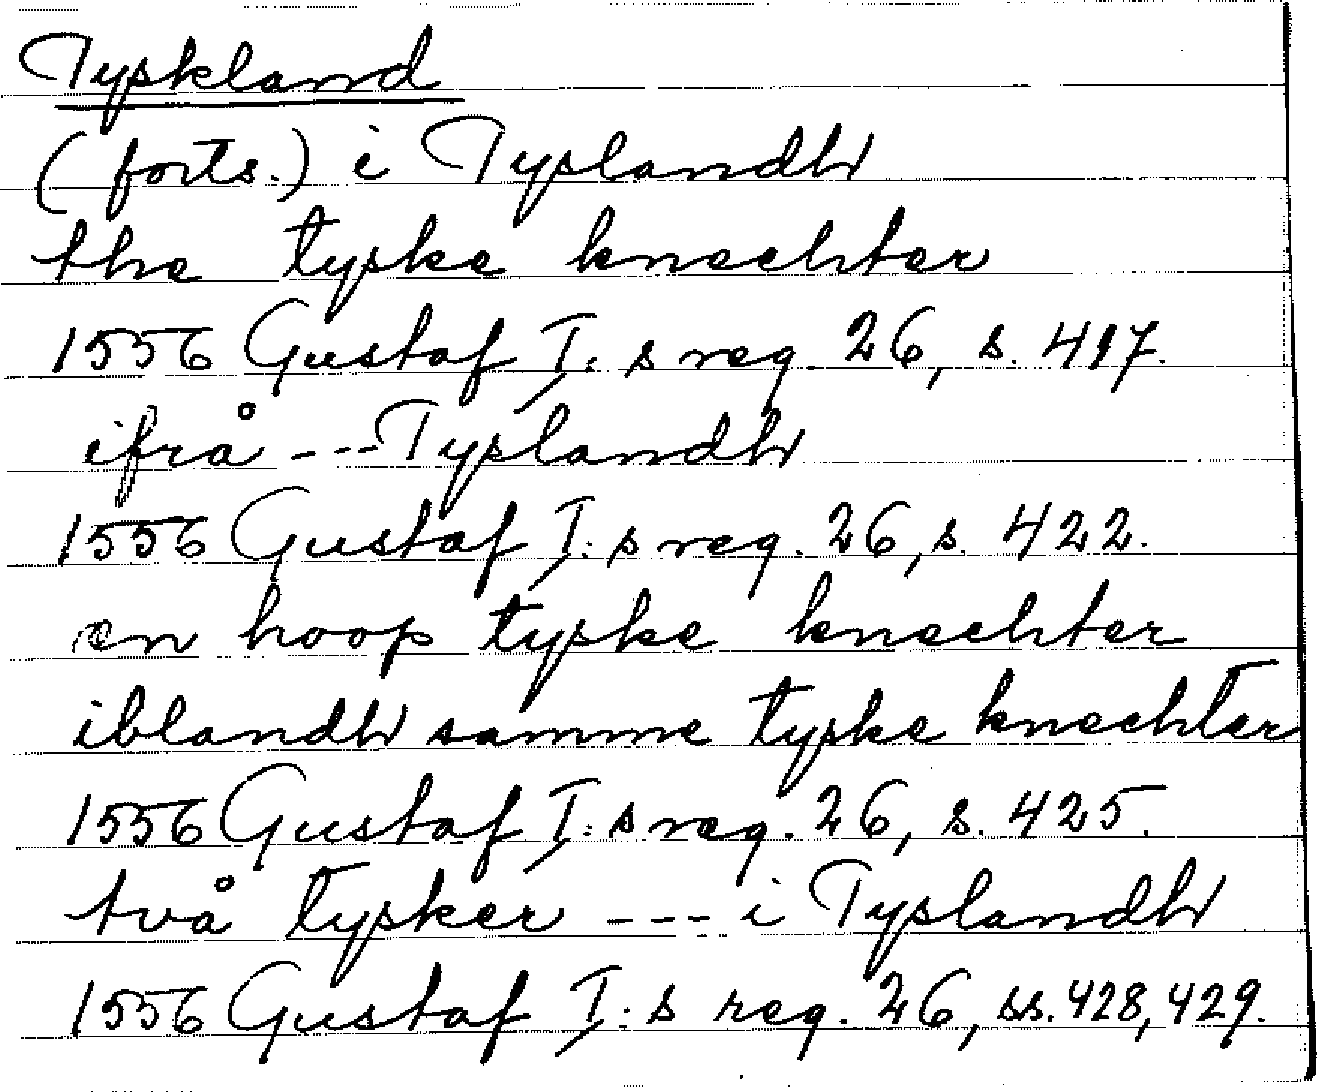 Tyskland
(forts.) i Tyslandh
the tyske knechter
1556 Gustaf I:s reg. 26, s. 417.
ifrå --- Tyslandh
1556 Gustaf I:s reg. 26, s. 422.
en hoop tyske knechter
iblandh samme tyske knechter
1556 Gustaf I:s reg. 26, s. 425.
två tysker --- i Tyslandh
1556 Gustaf I:s reg. 26, ss. 428, 429.